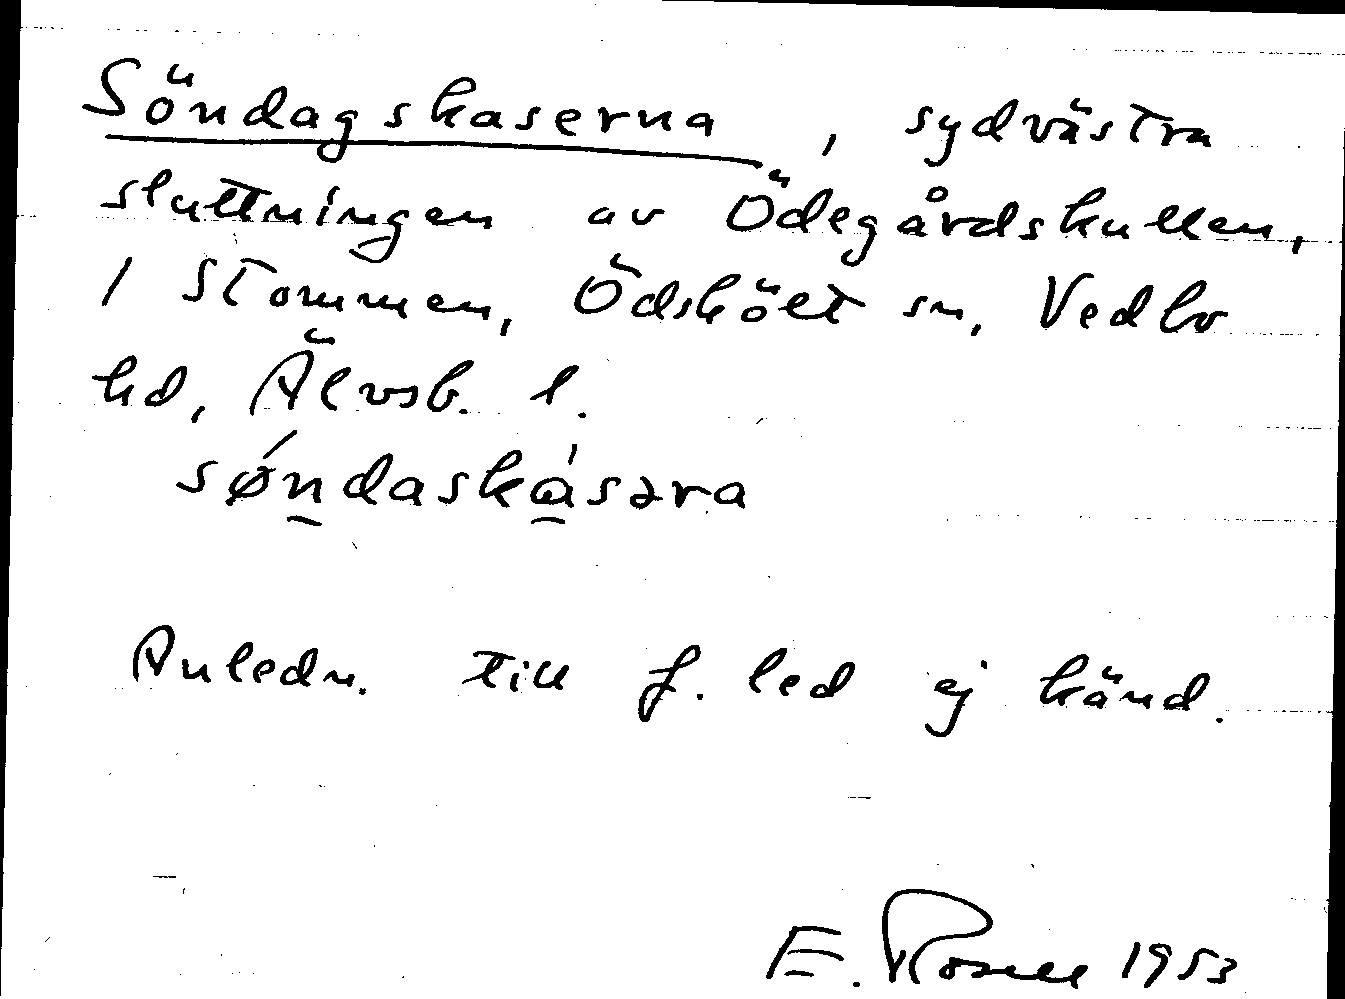 Söndagskaserna, sydvästra
sluttningen av Ödegårdskullen,
1 Stommen, Ödskölt sn, Vedbo
hd, Älvsb. l.
sǿn̲daská̲səra
Anledn. till f. led ej känd.
E. Rosell 1953